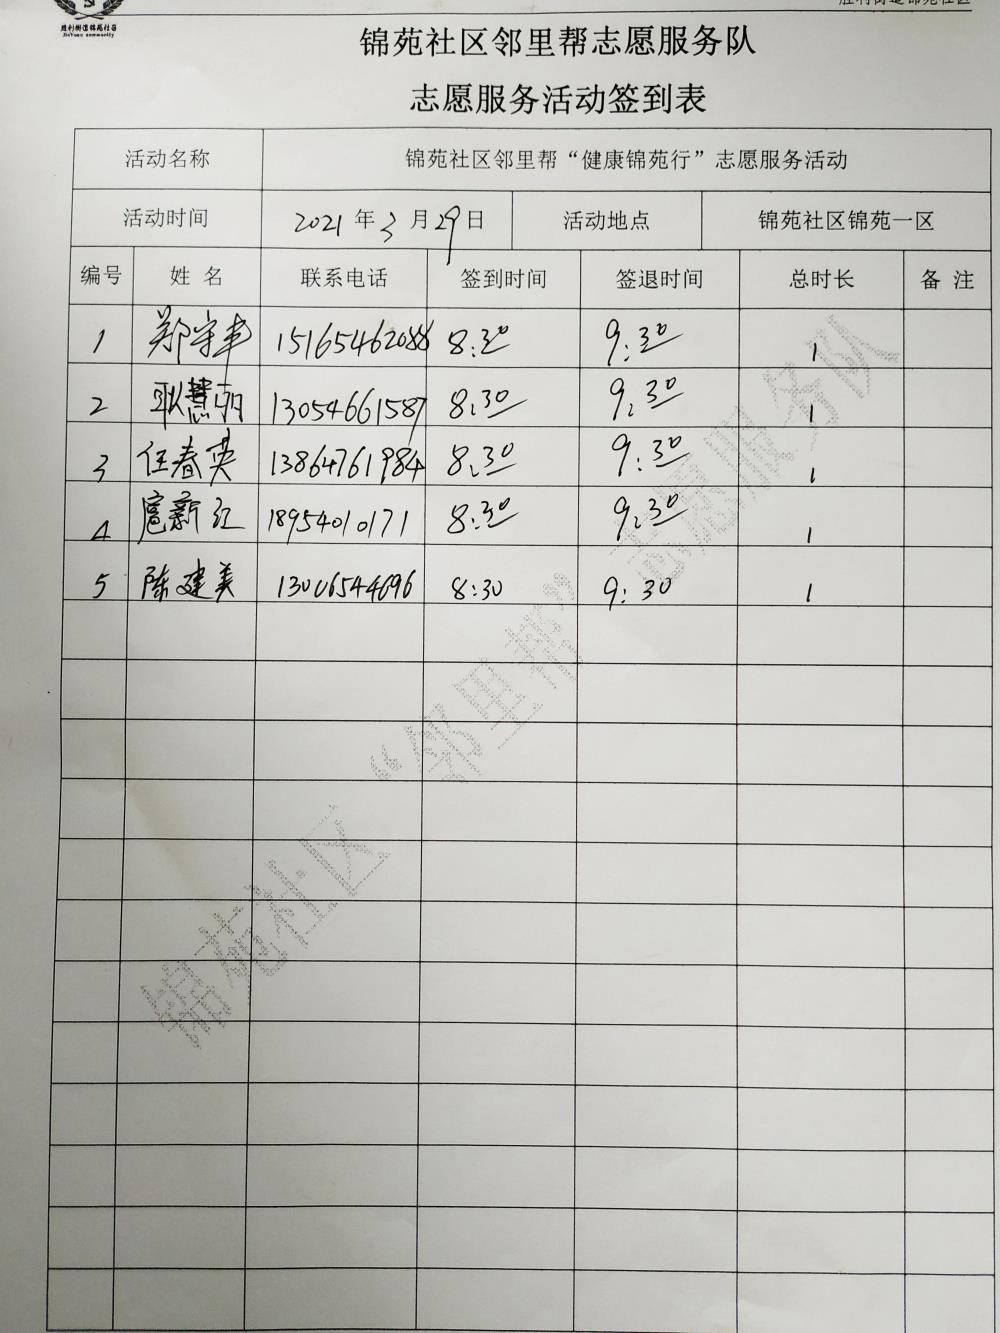 胜利街道锦苑社区
JinYuan community
胜利街道锦苑社区
锦苑社区邻里帮志愿服务队
志愿服务活动签到表
活动名称 锦苑社区邻里帮“健康锦苑行”志愿服务活动
活动时间 2021 年 3 月 29 日 活动地点 锦苑社区锦苑一区
编号 姓 名 联系电话 签到时间 签退时间 总时长 备 注
1 郑守丰 15165462088 8:30 9:30 1
2 耿慧丽 13054661587 8:30 9:30 1
3 任春英 13864761984 8:30 9:30 1
4 扈新江 18954010171 8:30 9:30 1
5 陈建美 13006544696 8:30 9:30 1
锦苑社区 “邻里帮” 志愿服务队